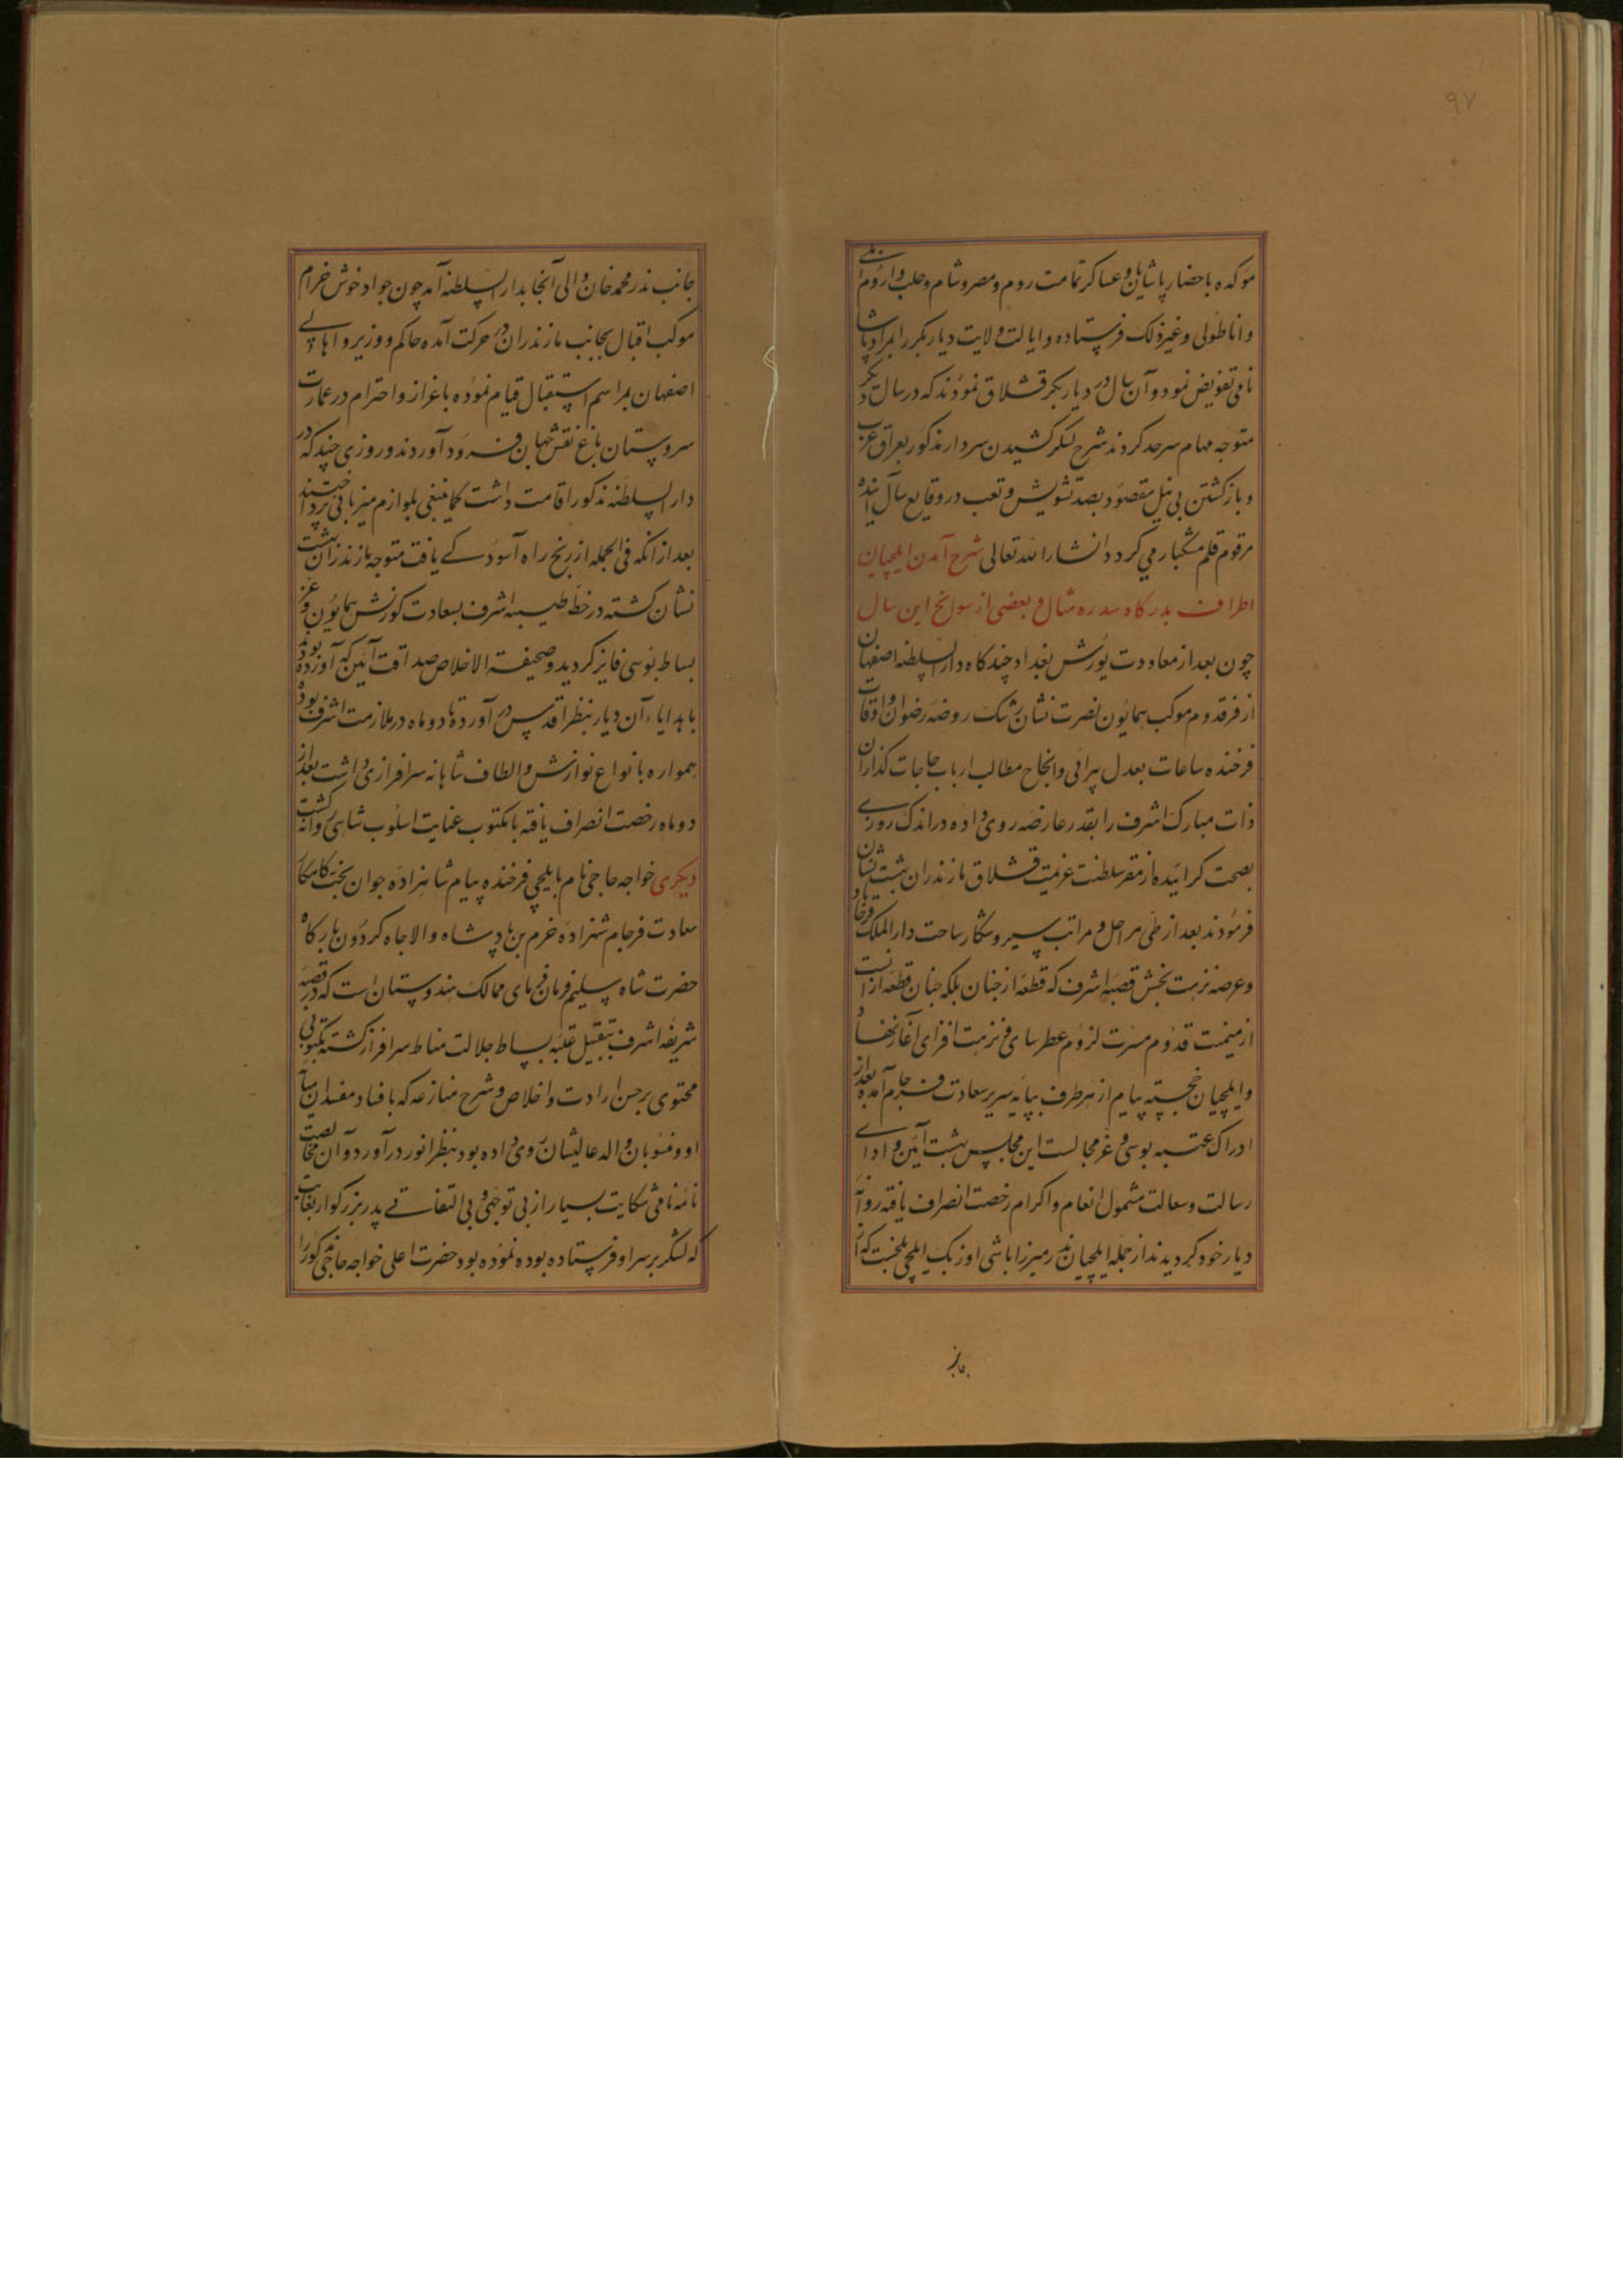 ۹۷
موکده باحضار پاشایان و عساکر تمامت روم و مصر و شام و حلب و ارزروم ایلی
و اناطولی و غیر ذلک فرستاده و ایالت ولایت دیاربکر را بمراد پاشا
نامی تفویض نمود و آن سال در دیاربکر قشلاق نمودند که در سال دیگر
متوجه مهام سرحد کردند شرح لشکر کشیدن سردار مذکور بعراق عرب
و بازکشتن بی نیل مقصود بصد تشویش و تعب در وقایع سال آینده
مرقوم قلم مشکبار می کردد انشاء الله تعالی شرح آمدن ایلچیان
اطراف بدرکاه سدره مثال و بعضی از سوانح این سال
چون بعد از معاودت یورش بغداد چندکاه دارالسلطنه اصفهان
از فر قدوم موکب همایون نصرت نشان رشک روضه رضوان و اوقات
فرخنده ساعات بعدل پیرائی و انجاح مطالب ارباب حاجات کذاران
ذات مبارک اشرف را بقدر عارضه روی داده در اندک روزی
بصحت کرائیده از مقر سلطنت عزیمت قشلاق مازندران بهشت نشان
فرمودند بعد از طی مراحل و مراتب سیر و شکار ساحت دارالملک فرح آباد
و عرصه نزهت بخش قصبه اشرف که قطعه از جنان بلکه جنان قطعه از آنست
از میمنت قدوم مسرت لزوم عطرسای و نزهت افزای آغاز نهاد
و ایلچیان خجسته پیام از هر طرف بپایه سریر سعادت فرجام آمده بعد از
ادراک عتبه بوسی و عز مجالست این مجلس بهشت آئین و ادای
رسالت و سعالت مشمول انعام و اکرام رخصت انصراف یافته روانه
دیار خود کردیدند از جمله ایلچیان نذر میرزاباشی اوزبک ایلچی بلخست که از
جانب نذر محمد خان والی آنجا بدارالسلطنه آمد چون جواد خوش خرام
موکب اقبال بجانب مازندران در حرکت آمده حاکم و وزیر و اهالی
اصفهان بمراسم استقبال قیام نموده باعزاز و احترام در عمارت
سروستان باغ نقش جهان فرود آوردند و روزی چند که در
دارالسلطنه مذکور اقامت داشت کما ینبغی بلوازم میزبانی پرداختند
بعد از آنکه فی الجمله از رنج راه آسودکے یافت متوجه مازندران بهشت
نشان کشته در خطه طیبه اشرف بسعادت کورنش همایون و عز
بساط بوسی فایز کردید و صحیفة الاخلاص صداقت آئین که آورده بود
با هدایاء آن دیار بنظر اقدس در آورد تا دو ماه در ملازمت اشرف بوده
همواره بانواع نوازش و الطاف شاهانه سرافرازی داشت بعد از
دو ماه رخصت انصراف یافته با مکتوب عنایت اسلوب شاهی روانه کشت
دیکری خواجه حاجی نام بایلچی فرخنده پیام شاهزاده جوان بخت کامکار
سعادت فرجام شهزاده خرم بن پادشاه والاجاه کردون بارکاه
حضرت شاه سلیم فرمان فرمای ممالک هندوستان است که در قصبه
شریفه اشرف بتقبیل عتبه بساط جلالت مناط سرافراز کشته مکتوبی
محتوی بر حسن ارادت و اخلاص و شرح منازعه که بافساد مفسدان میانه
او و منسوبان والد عالیشان روی داده بود بنظر انور در آورد و آن مخالصت
نامه نامی شکایت بسیار از بی توجهی و بی التفاتے پدر بزرکوار بغایت
که لشکر بر سر او فرستاده بوده نموده بود حضرت اعلی خواجه حاجی مذکور را